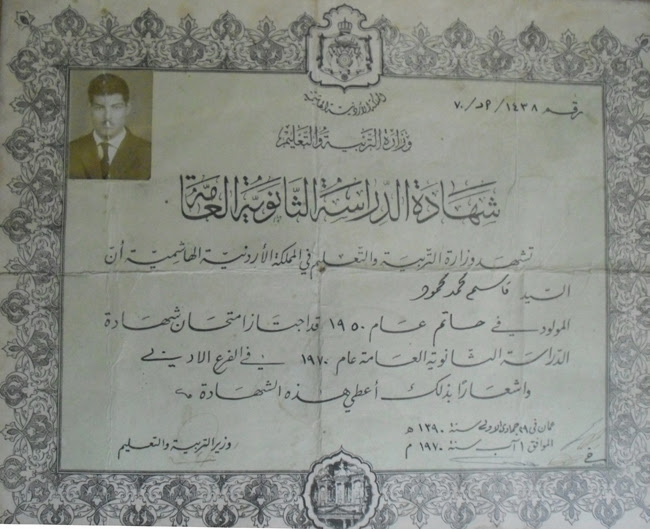 المملكة الأردنية الهاشمية
رقم ١٤٣٨/ /٧٠
وزارة التربية والتعليم
شهادة الدراسة الثانوية العامة
تشهد وزارة التربية والتعليم في المملكة الأردنية الهاشمية أن
السيد قاسم محمد محمود
المولود في حاتم عام ١٩٥٠ قد اجتاز امتحان شهادة
الدراسة الثانوية العامة عام ١٩٧٠ في الفرع الادبي
واشعارا بذلك أعطي هذه الشهادة
عمان في ٢٩ جمادى الاولى سنة ١٣٩٠ هـ
الموافق ١ آب سنة ١٩٧٠ م
وزير التربية والتعليم